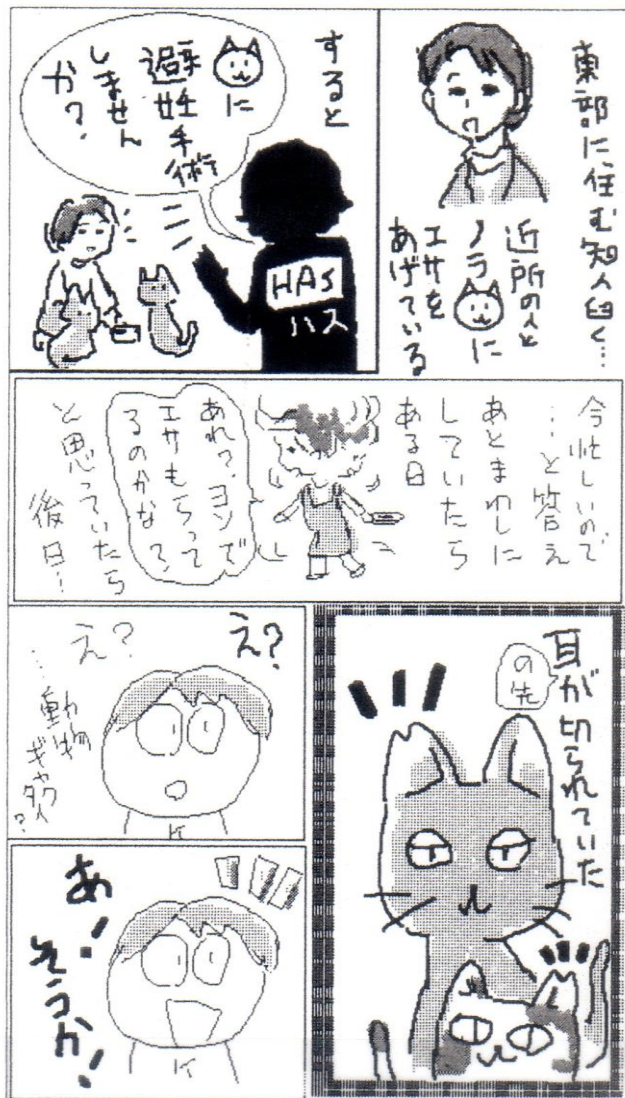 東部に住む知人曰く…
近所の人と
ノラ に
エサを
あげている
すると
に
避妊手術
しません
か?
HAS
ハス
今忙しいので
…と答え
あとまわしに
していたら
ある日
あれ?ヨソで
エサもらって
るのかな?
と思っていたら
後日!
耳が切られていた
の先
え?
え?
…動物
ギャクタイ?
K
あ!
そうか!
K